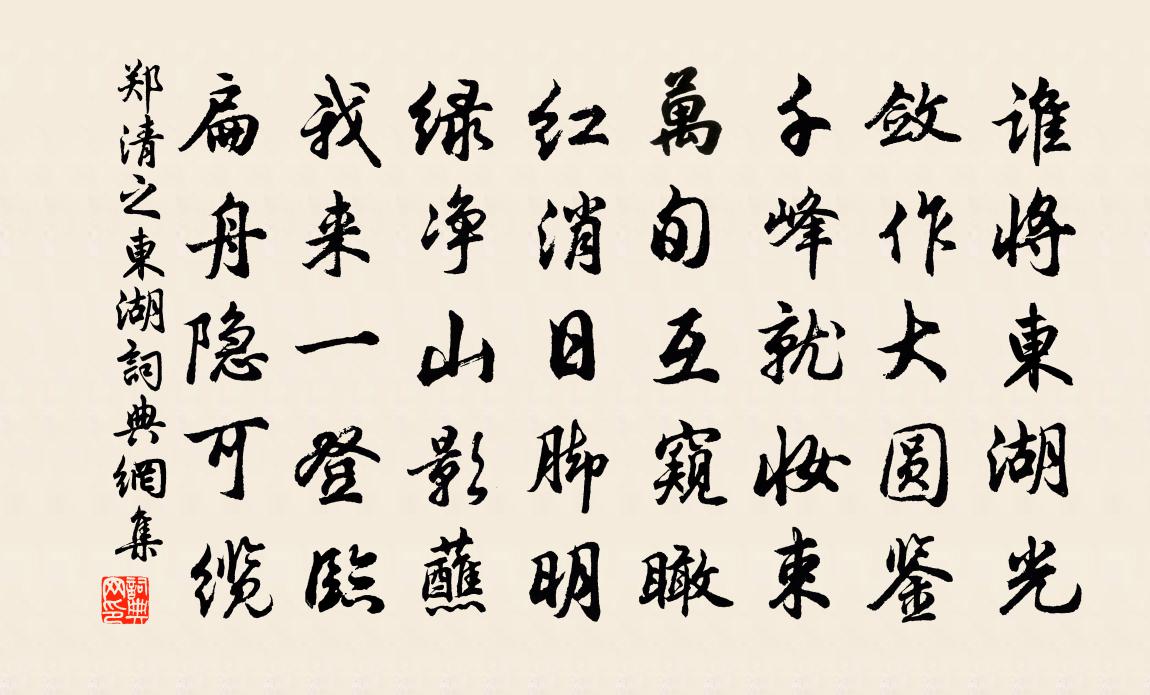 谁将東湖光
敛作大圆鉴
千峰就妆束
萬旬互窥瞰
红消日脚明
绿净山影蘸
我来一登臨
扁舟隐可缆
郑清之東湖詞典網集
詞典網印